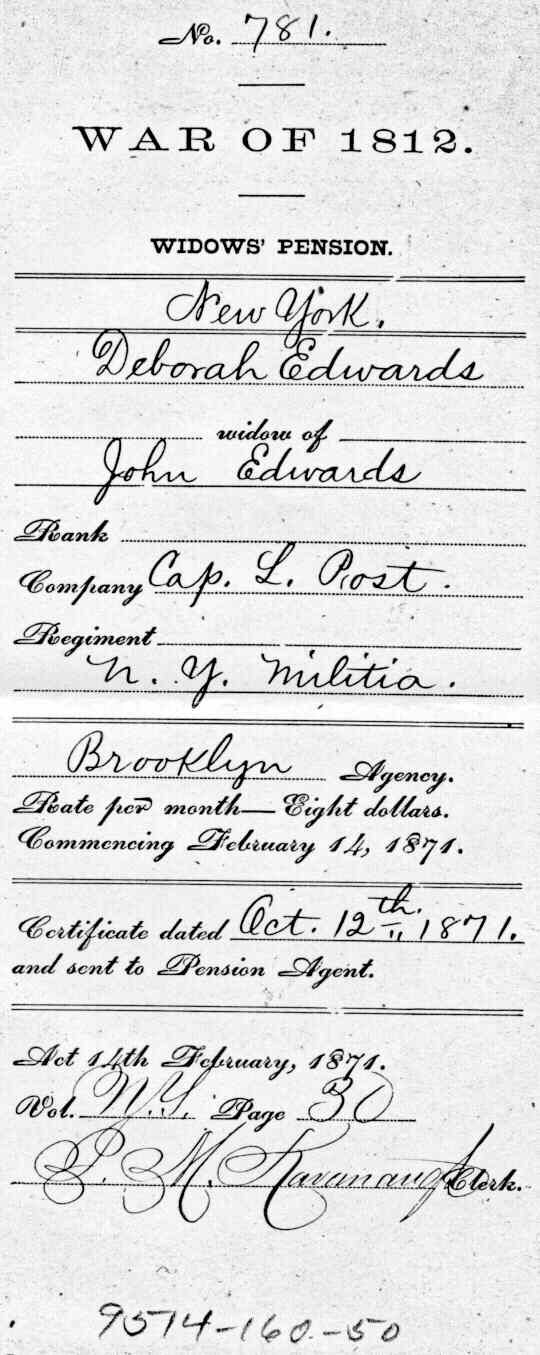 No. 781.
WAR OF 1812.
WIDOWS' PENSION.
New York.
Deborah Edwards
widow of
John Edwards
Rank
Company Cap. L. Post.
Regiment
N. Y. Militia.
Brooklyn Agency.
Rate per month—Eight dollars.
Commencing February 14, 1871.
Certificate dated Oct. 12th. 1871.
and sent to Pension Agent.
Act 14th February, 1871.
Vol. N.Y. Page 30
P. M. Kavanaugh Clerk.
9574-160-50